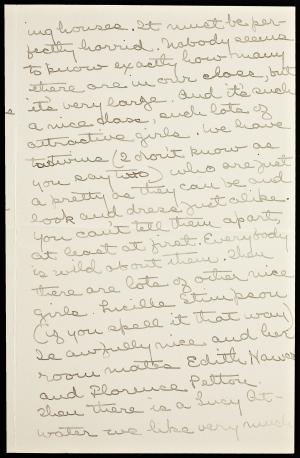 ing houses. It must be per-
fectly horrid. Nobody seems
to know exactly how many
there are in our class, but
it's very large. And it's such
a nice class, such lots of
attractive girls. We have
twins (I don't know as
you say two) who are just
as pretty as they can be and
look and dress just alike.
You can't tell them apart,
at least at first. Everybody
is wild about them. Then
there are lots of other nice
girls. Lucille Stimpson
(if you spell it that way)
is awfully nice and her
room mates Edith Hawes
and Florence Pelton.
Then there is a Lucy At-
water we like very much